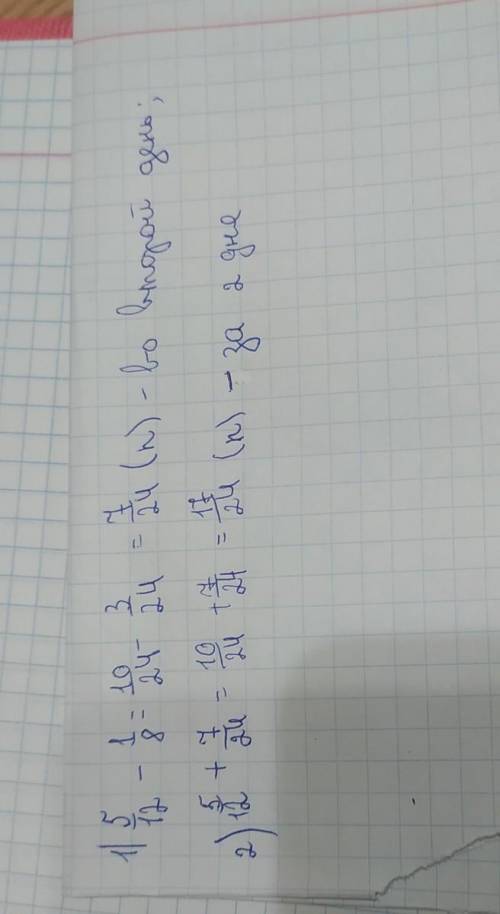 1) 5/12 - 1/8 = 10/24 - 3/24 = 7/24 (н) - во второй день;
2) 5/12 + 7/24 = 10/24 + 7/24 = 17/24 (н) - за 2 дня